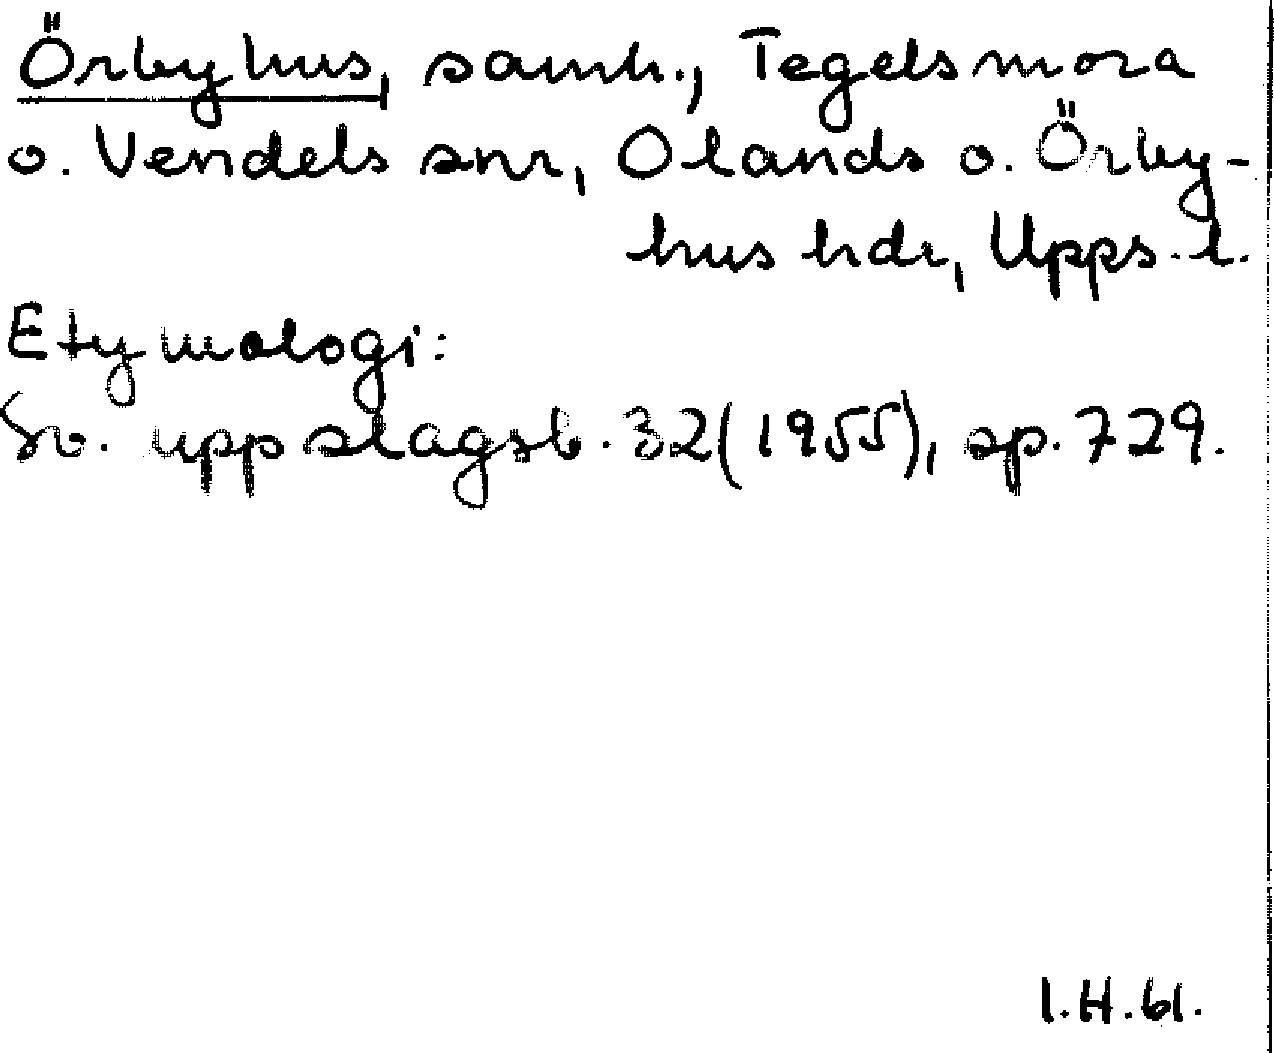 Örbyhus, samh., Tegelsmora
o. Vendels snr, Olands o. Örby-
hus hdr, Upps. l.
Etymologi:
Sv. uppslagsb. 32(1955), sp. 729.
I.H.61.